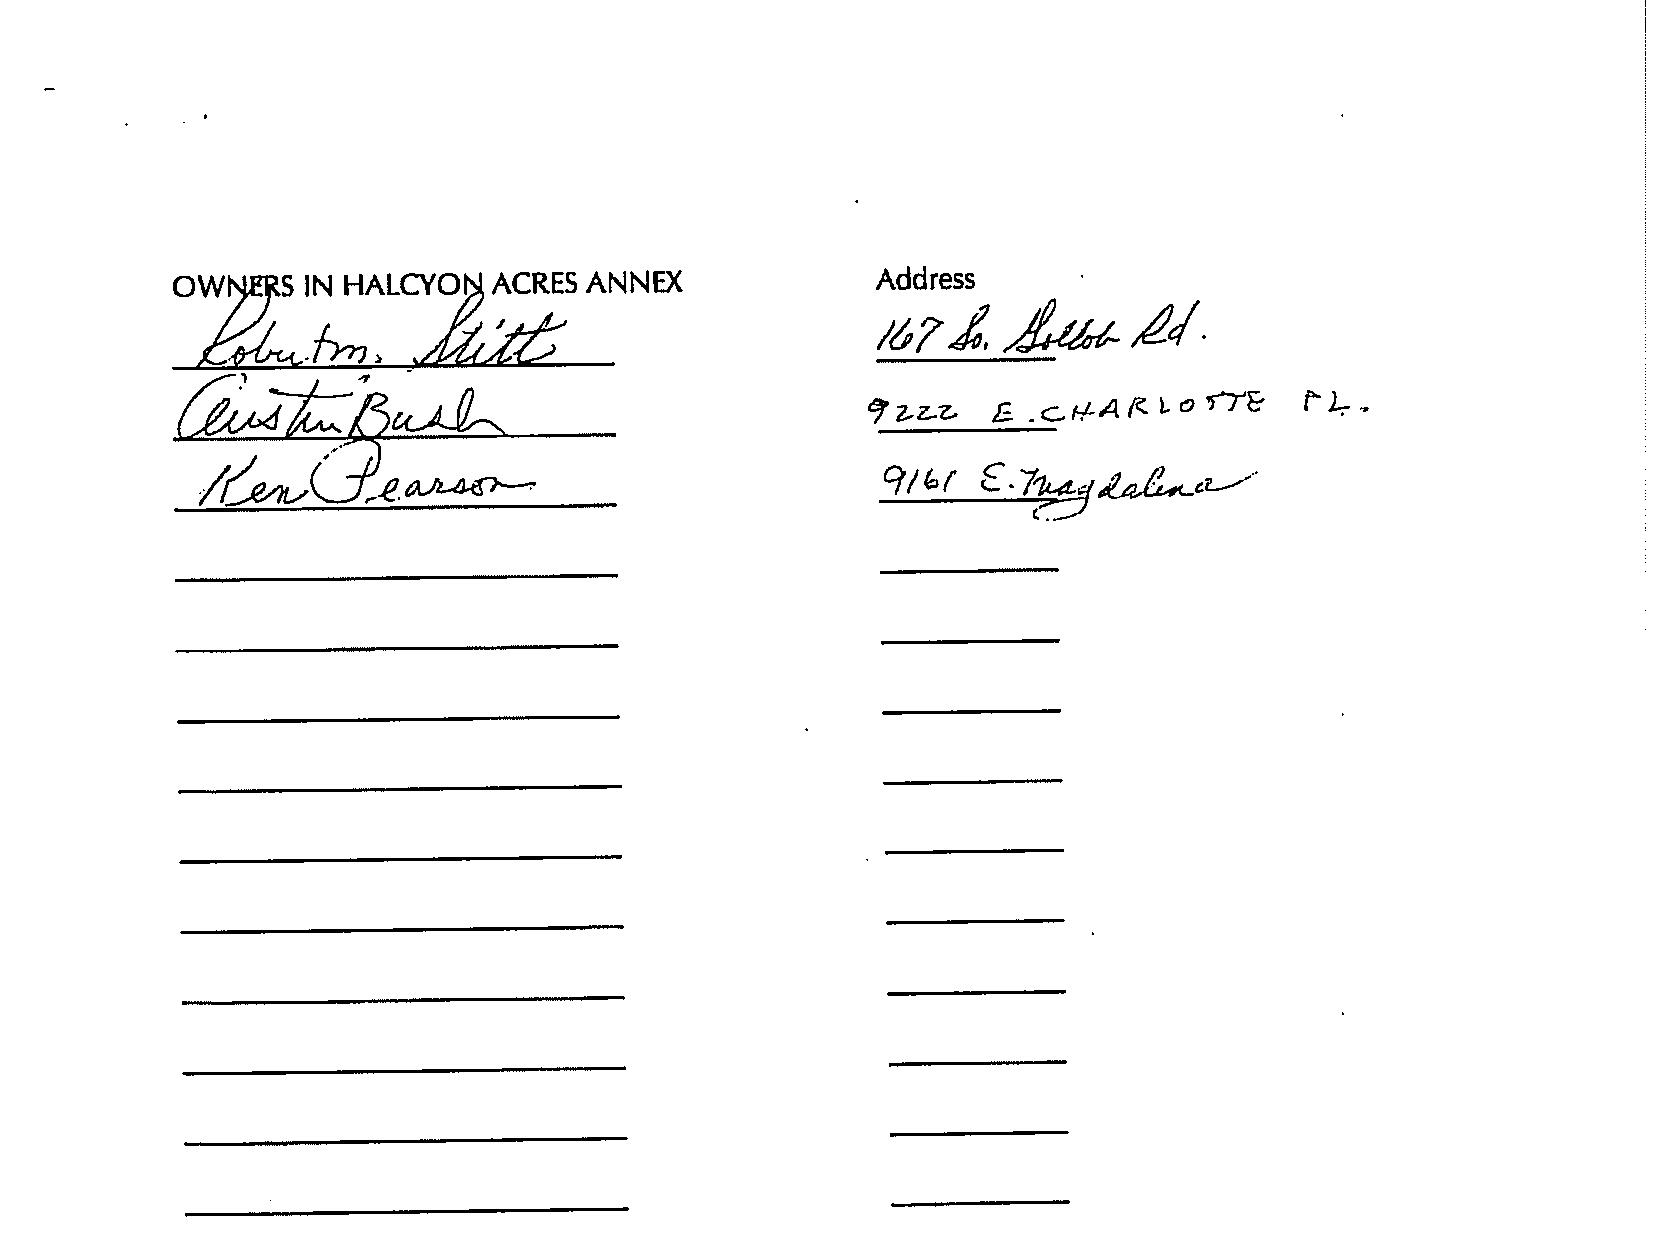 OWNERS IN HALCYON ACRES ANNEX Address
Robert M. Stitt 167 So. Gollob Rd.
Austin Bush 9222 E. CHARLOTTE PL.
Ken Pearson 9161 E. Magdalena